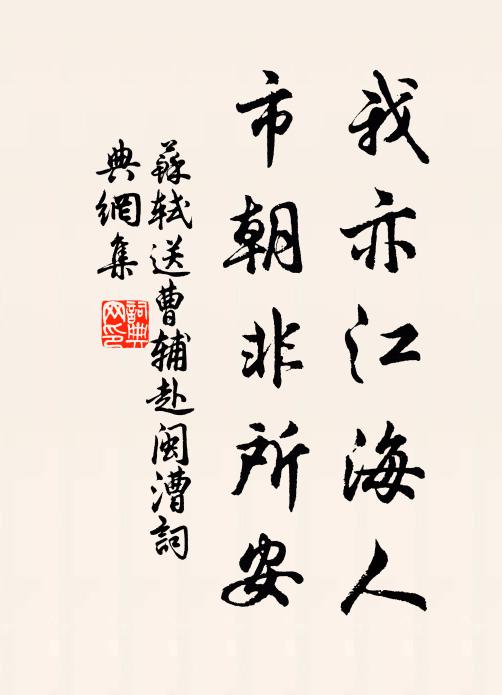 我亦江海人
市朝非所安
蘇軾送曹辅赴闽漕詞
典網集
詞典
网印